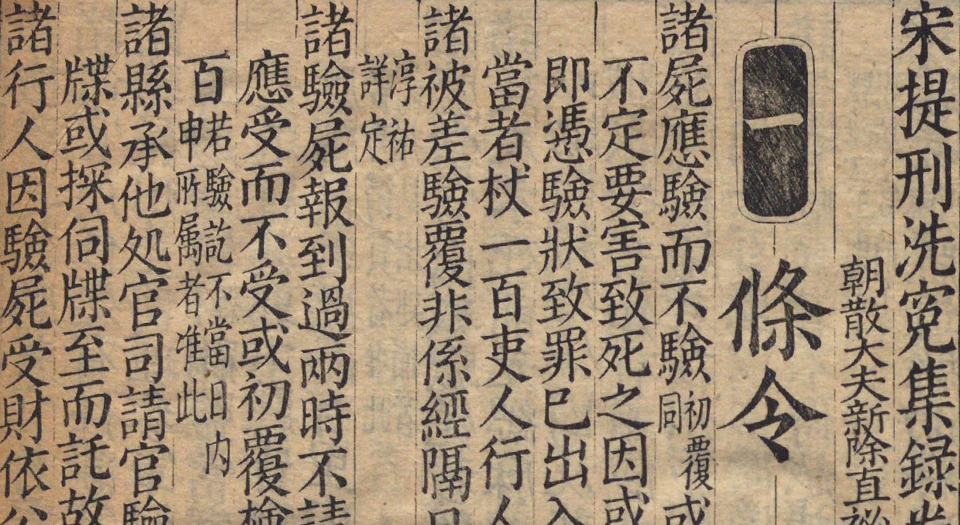 宋提刑洗冤集録卷
朝散大夫新除直祕
一
條令
諸屍應驗而不驗初覆同或
不定要害致死之因或
即憑驗狀致罪已出入
當者杖一百吏人行人
諸被差驗覆非係經隔日
淳祐詳定
諸驗屍報到過两時不請
應受而不受或初覆檢
百若驗訖不當日内申所属者准此
諸縣承他処官司請官驗
牒或探伺牒至而託故
諸行人因驗屍受財依公